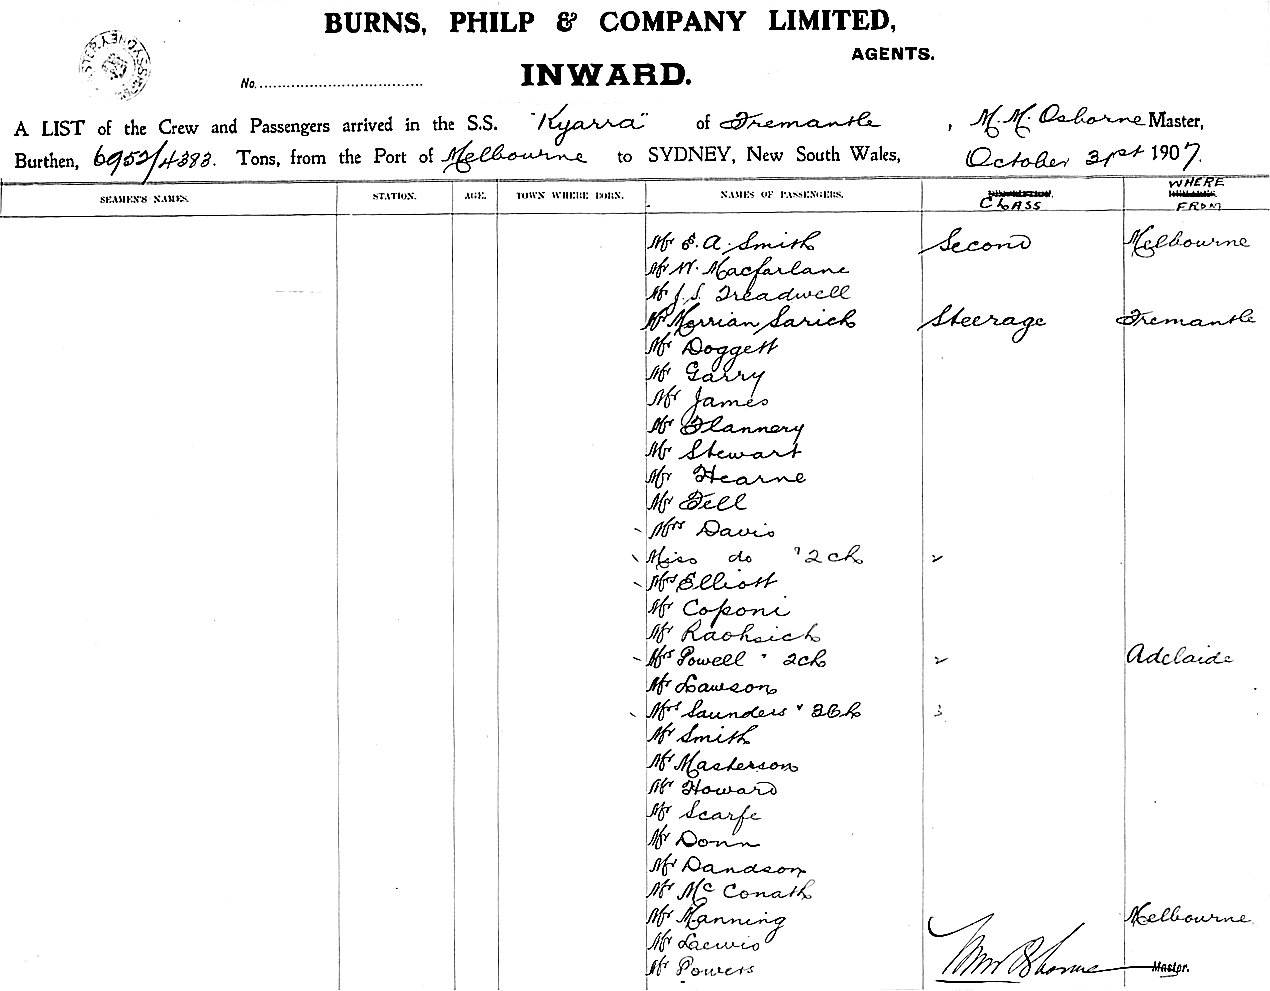 BURNS, PHILP & COMPANY LIMITED,
AGENTS.
INWARD.
No.
A LIST of the Crew and Passengers arrived in the S.S. "Kyarra" of Fremantle, M. M. Osborne Master,
Burthen, 6952/4383. Tons, from the Port of Melbourne to SYDNEY, New South Wales, October 31st 1907.
SEAMEN'S NAMES. STATION. AGE. TOWN WHERE BORN. NAMES OF PASSENGERS. CLASS WHERE FROM
Mr E. A. Smith Second Melbourne
Mr W. Macfarlane
Mr J. S. Treadwell
Mr Merrian Sarich Steerage Fremantle
Mr Doggett
Mr Garry
Mr James
Mr Flannery
Mr Stewart
Mr Hearne
Mr Fell
Mrs Davis
Miss do " 2 ch 2
Mrs Elliott
Mr Coponi
Mr Raohsich
Mrs Powell " 2ch 2 Adelaide
Mr Lawson
Mrs Saunders " 3 Ch 3
Mr Smith
Mr Masterson
Mr Howard
Mr Scarfe
Mr Donn
Mr Dandson
Mr McConath
Mr Manning Melbourne
Mr Laewis
Mr Powers Master.